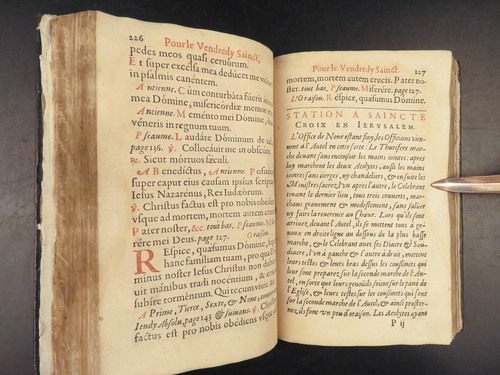 226
Pour le Vendredy Sainct,
pedes meos quasi ceruorum.
Et super excelsa mea deducet me victor
in psalmis canéntem.
Antienne. Cùm conturbáta fúerit ánima
mea Dómine, misericórdiæ memor
Antienne. Meménto mei Dómine,
véneris in regnum tuum.
Pseaume. Laudáte Dóminum de
page 136. ℣. Collocáuit me in obscúris
℟. Sicut mórtuos sæculi.
A Benedictus, Antienne. Posuérunt
super caput eius causam ipsíus scriptam
Iesus Nazarénus, Rex Iudæórum.
℣. Christus factus est pro nobis obédiens
vsque ad mortem, mortem autem crucis
Pater noster, &c. tout bas, Pseaume. Mise-
rére mei Deus. page 127.
Oraison.
Réspice, quæsumus Dómine, super
hanc famíliam tuam, pro qua
minus noster Iesus Christus non dubi-
uit mánibus tradi nocéntium, & crucis
subíre torméntum. Qui tecum viuit,
A Prime, Tierce, Sexte, & None, comme
Ieudy Absolu, page 143 & suiuans. ℣. Christus
factus est pro nobis obédiens vsque
Pour le Vendredy Sainct.
227
mortem, mortem autem crucis. Pater no-
ster. tout bas, Pseaume. Miserére. page 127.
L'Oraison. Réspice, quæsumus Dómine.
STATION A SAINCTE
CROIX EN IERVSALEM.
L'Office de None estant finy, les Officiers vien-
nent à l'Autel en cette sorte: Le Thuriféraire mar-
che deuant sans encensoir les mains iointes; apres
luy marchent les deux Acolytes, aussi les mains
iointes sans cierges, ny chandeliers, & en suite les
Ministres sacrez, l'vn apres l'autre, le Celebrant
tenant le dernier lieu, tous trois couuerts, mar-
chans grauement & modestement, sans saluer
ny faire la reuerence au Chœur. Lors qu'ils sont
arriuez deuant l'Autel, ils se mettent tous à ge-
noux en droite ligne au dessous de la plus basse
marche, & le Celebrant auec ses Diacre & Sou-
diacre, l'vn à gauche & l'autre à droit, mettent
leurs testes & leurs bras dessus les coussinets qui
leur sont preparez sur la seconde marche de l'Au-
tel, en sorte que leurs genoüils soient sur le paué de
l'Eglise, & leurs testes sur les coussinets qui sont
sur la seconde marche de l'Autel, & ainsi proster-
nez, ils font vn peu d'oraison. Les Acolytes ayant
P ij